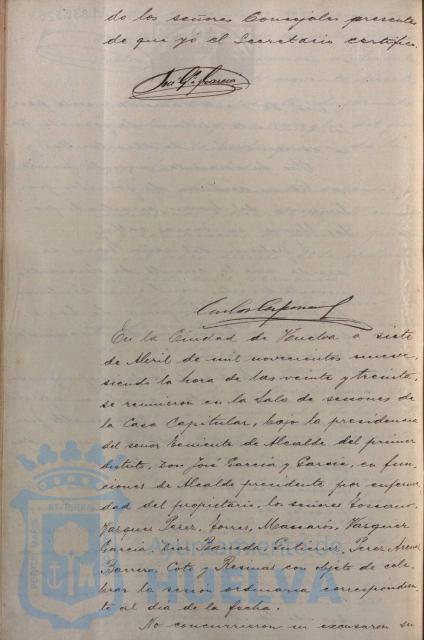 do los señores Concejales presentes
de que yo el Secretario certifico.
José Gª García
Carlos
En la Ciudad de Huelva a siete
de Abril de mil novecientos nueve,
siendo la hora de las veinte y treinta,
se reunieron en la Sala de sesiones de
la Casa Capitular, bajo la presidencia
del señor Teniente de Alcalde del primer
distrito, Don José García y García, en fun-
ciones de Alcalde presidente por enferme-
dad del propietario, los señores
Vazquez Perez, Torres, Vazquez
Garcia, Diaz Barreda, Perez
Barrera, Coto y con objeto de cele-
brar la sesión ordinaria correspondien-
te al dia de la fecha.
No concurrieron ni excusaron su
Ayuntamiento de
HUELVA